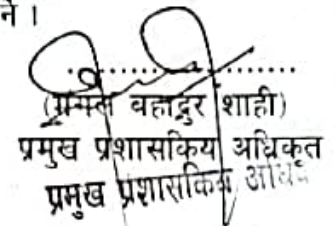 ने ।
बहादुर शाही)
प्रमुख प्रशासकिय अधिकृत
प्रमुख प्रशासकिय